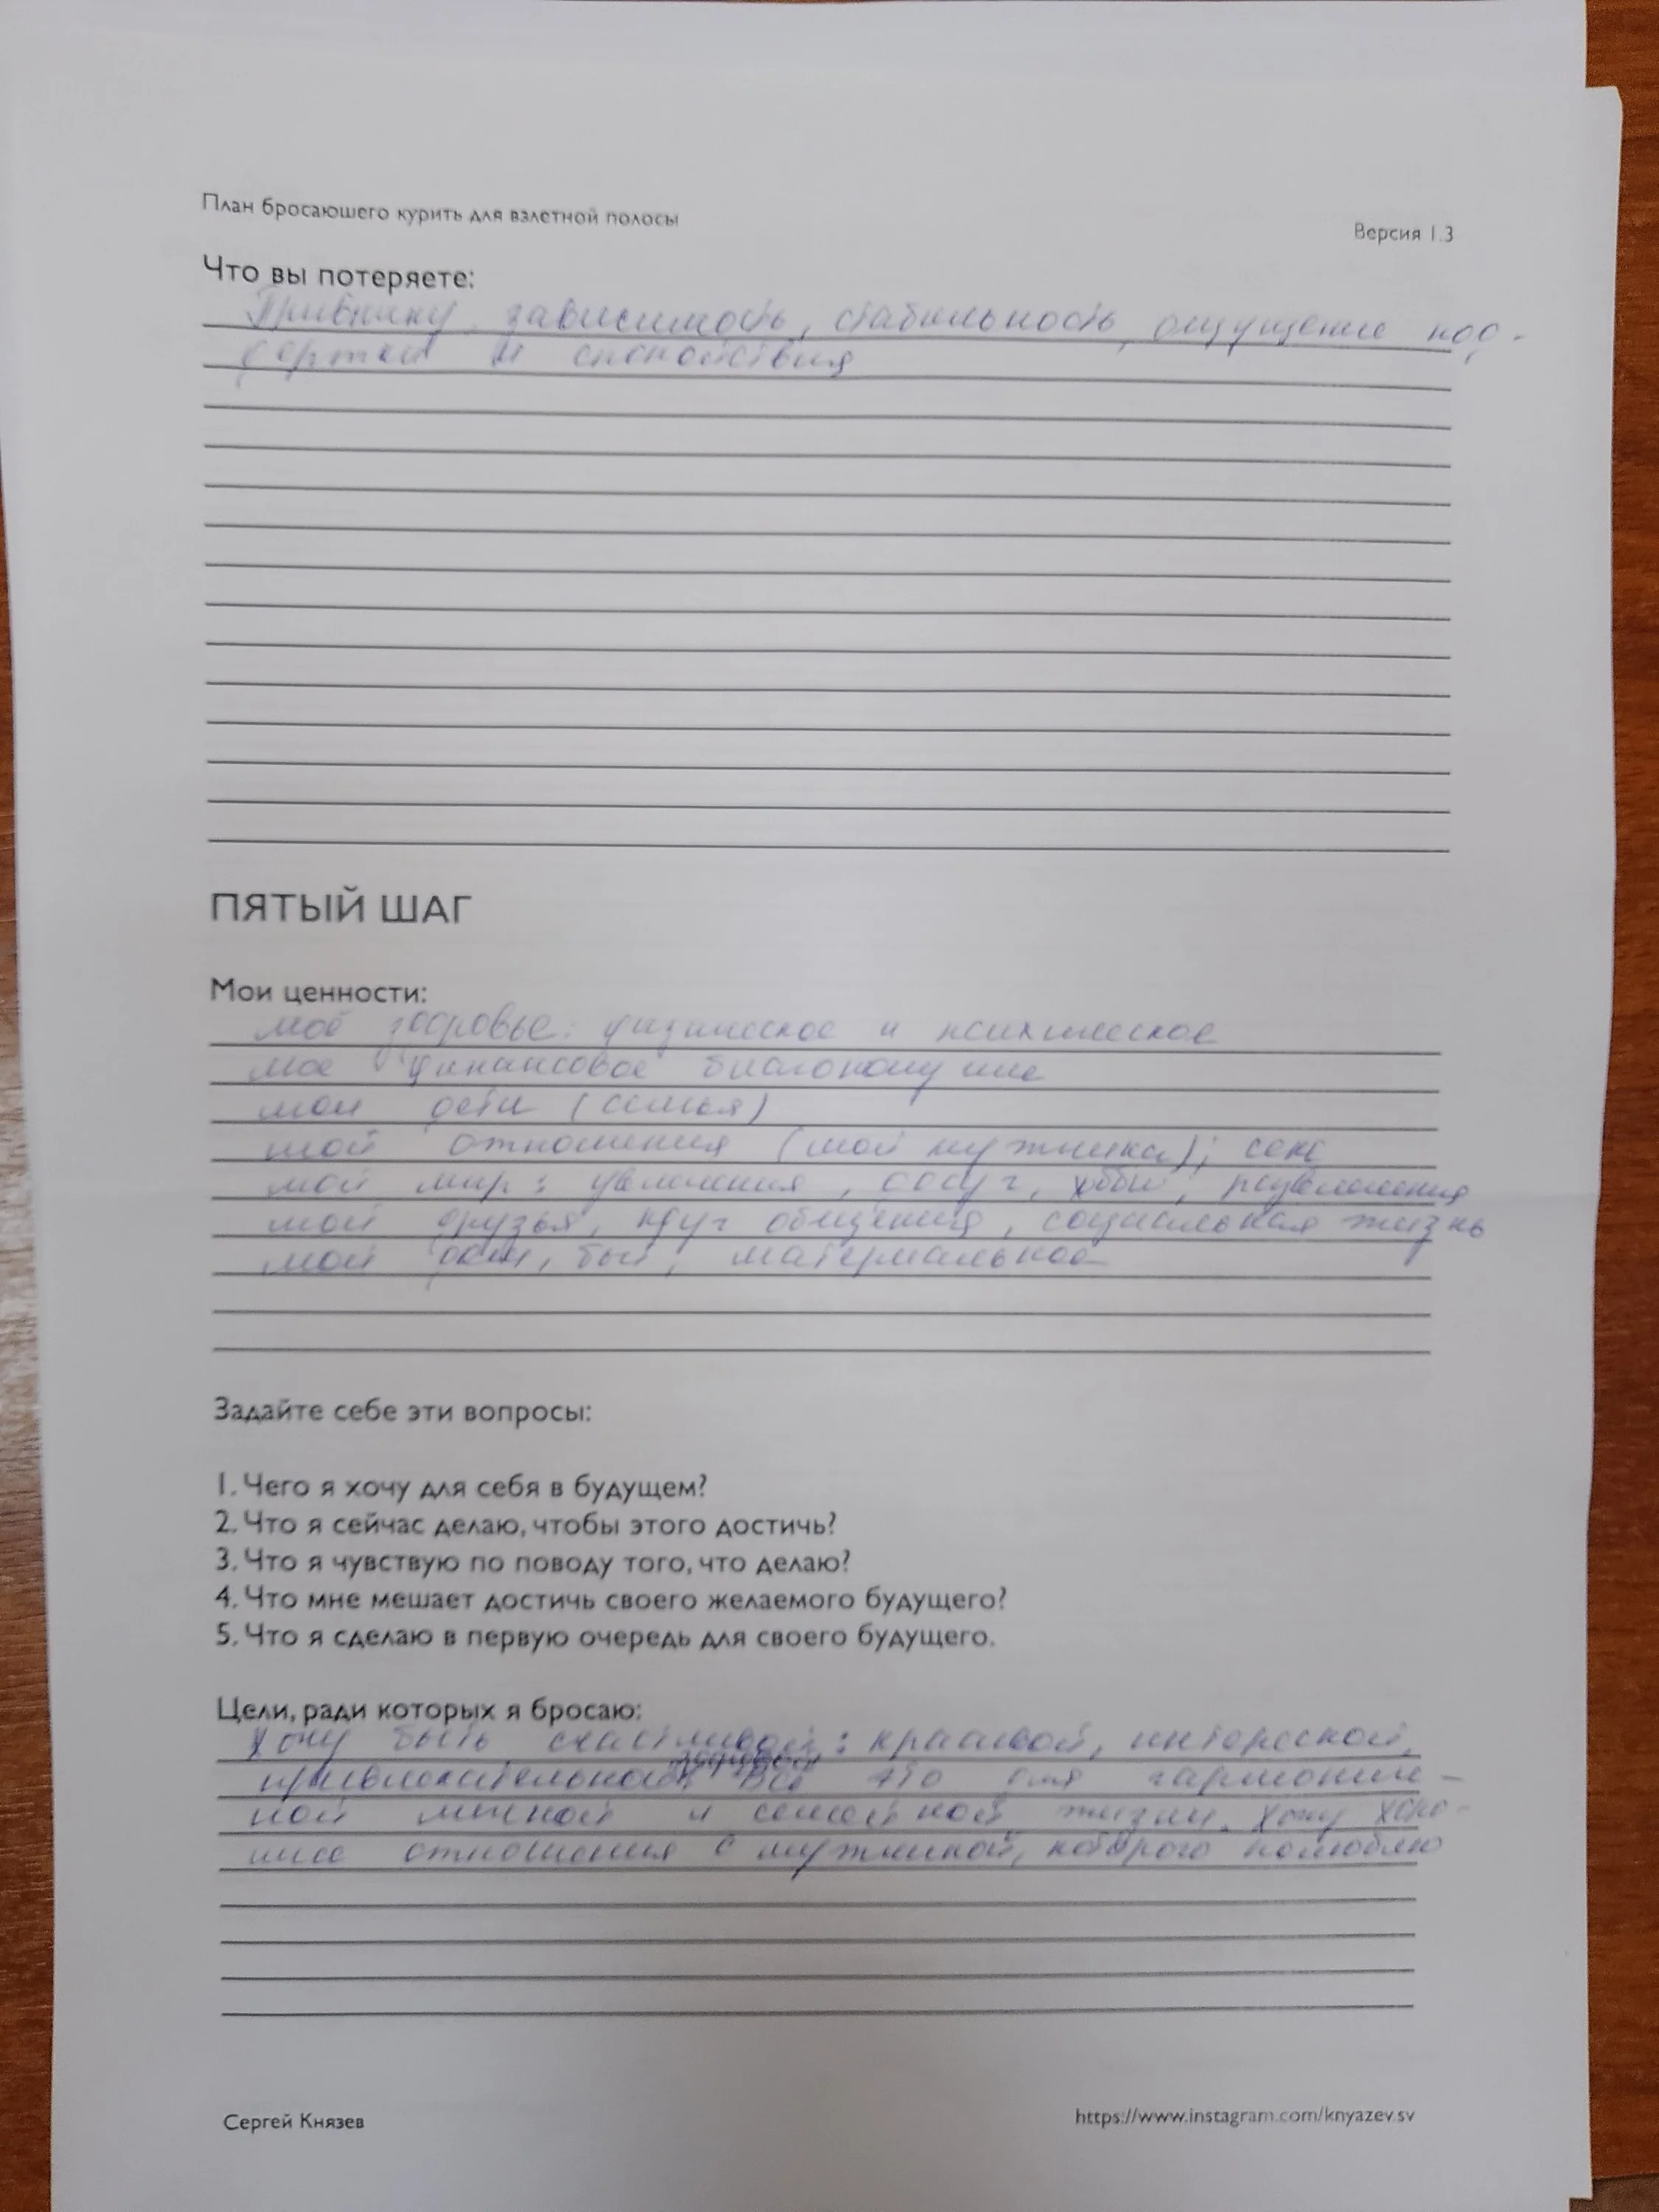 План бросаюшего курить для взлетной полосы
Версия 1.3
Что вы потеряете:
Привычку, зависимость, стабильность, ощущение под-
держки и спокойствия
ПЯТЫЙ ШАГ
Мои ценности:
моё здоровье: физическое и психическое
мое финансовое благополучие
мои дети (семья)
мой отношения (мой мужчина); секс
мой мир: увлечения, досуг, хобби,
мои друзья, круг общения, социальная жизнь
мой дом, быт, материальное
Задайте себе эти вопросы:
1. Чего я хочу для себя в будущем?
2. Что я сейчас делаю, чтобы этого достичь?
3. Что я чувствую по поводу того, что делаю?
4. Что мне мешает достичь своего желаемого будущего?
5. Что я сделаю в первую очередь для своего будущего.
Цели, ради которых я бросаю:
Хочу быть счастливой: красивой, интересной,
здоровой
привлекательной. Все это для гармонич-
ной личной и семейной жизни. Хочу хоро-
шие отношения с мужчиной, которого полюблю
Сергей Князев
https://www.instagram.com/knyazev.sv